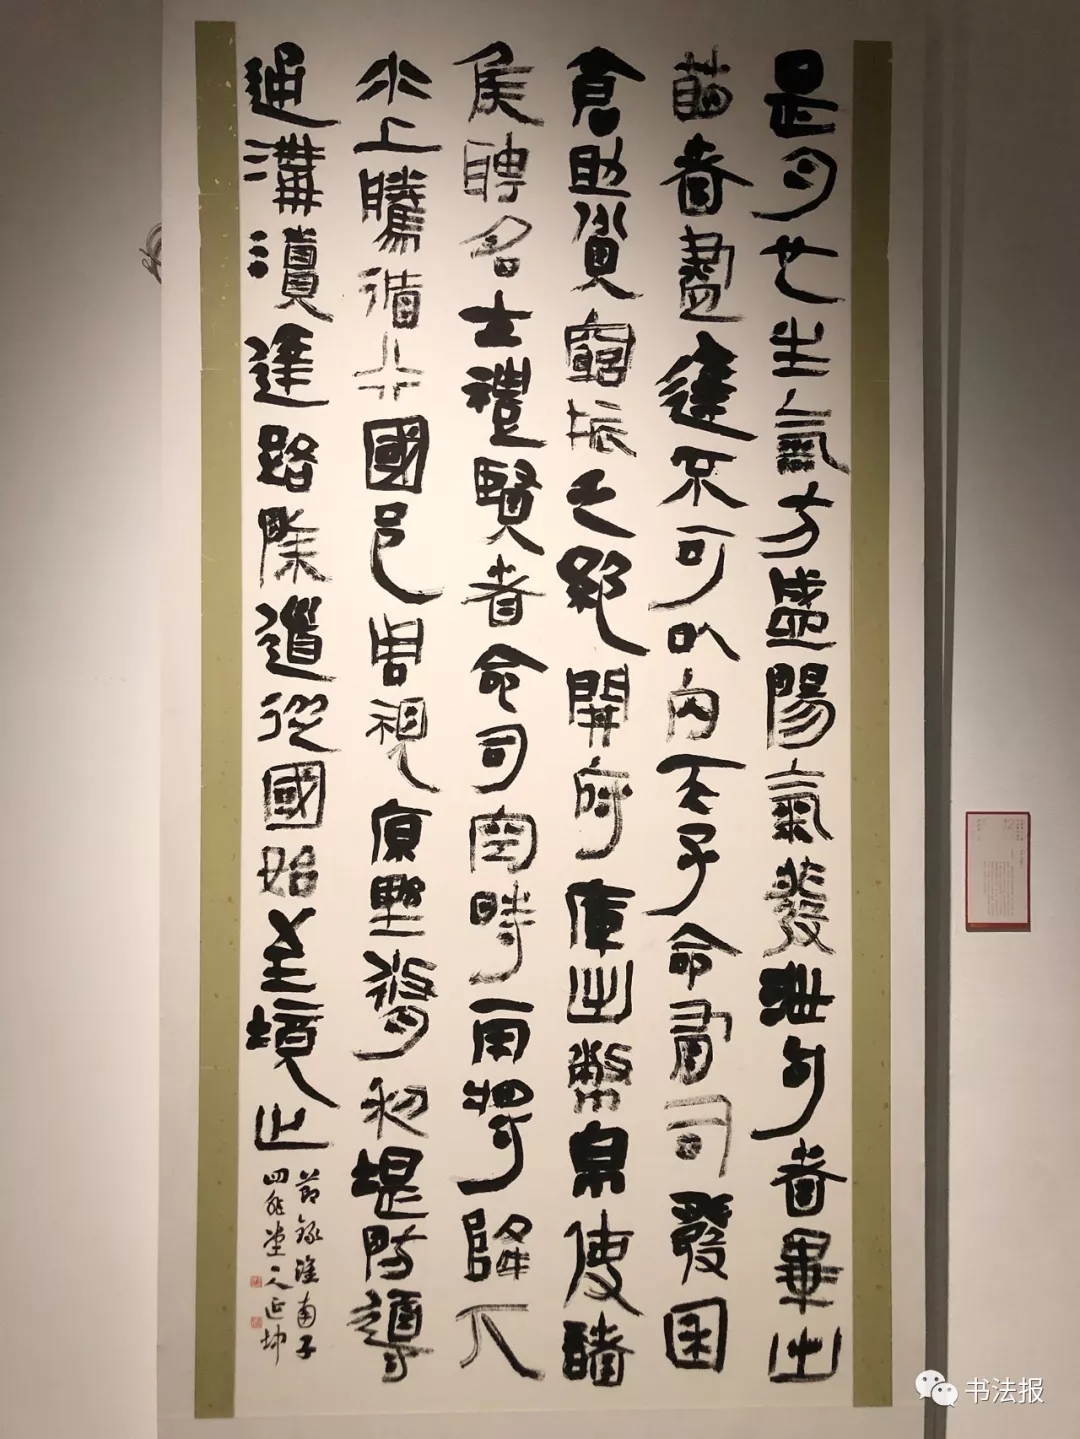 是月也生氣方盛陽氣發泄句者畢出
萌者盡達不可以內天子命有司發囷
倉助貧窮振乏絕開府庫出幣帛使諸
侯聘名士禮賢者命司空時雨將降下
水上騰循行國邑周視原野修利堤防導
通溝瀆達路除道從國始至境止
節錄淮南子
堂人延坤
书法报